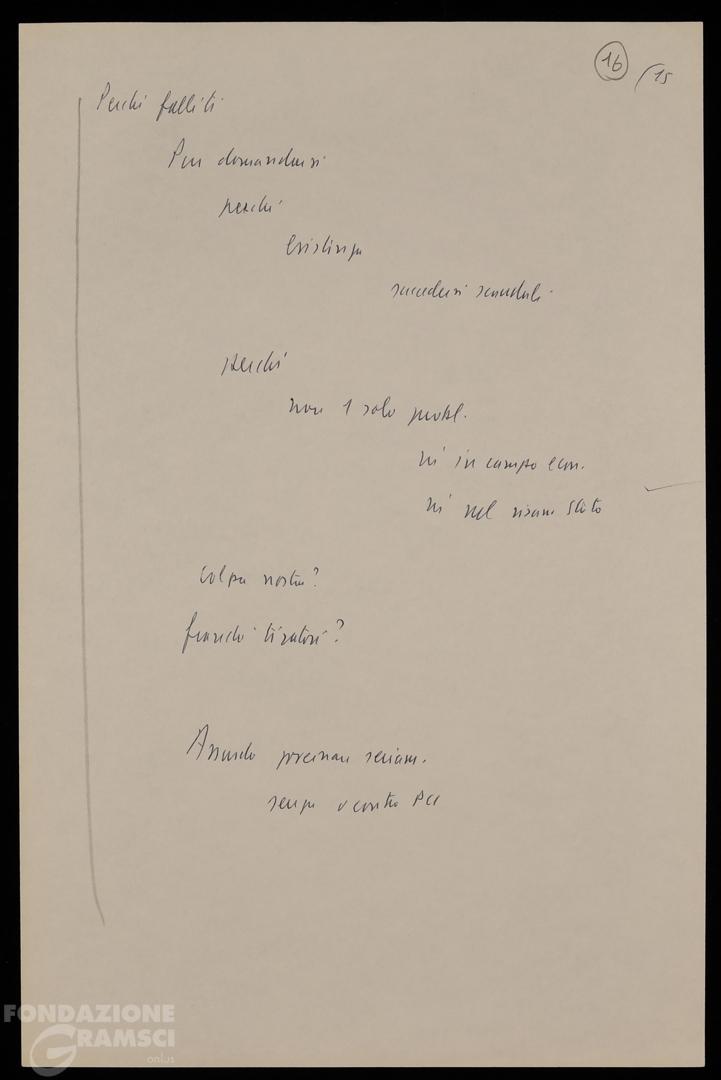 16 /15
Perché falliti
Può domandarsi
perché
esistenza
succedersi scandali
perché
non 1 solo probl.
né in campo econ.
né nel risan. Stato
Colpa nostra?
franchi tiratori?
Assurdo governare seriam.
senza o contro PCI
FONDAZIONE
GRAMSCI
onlus